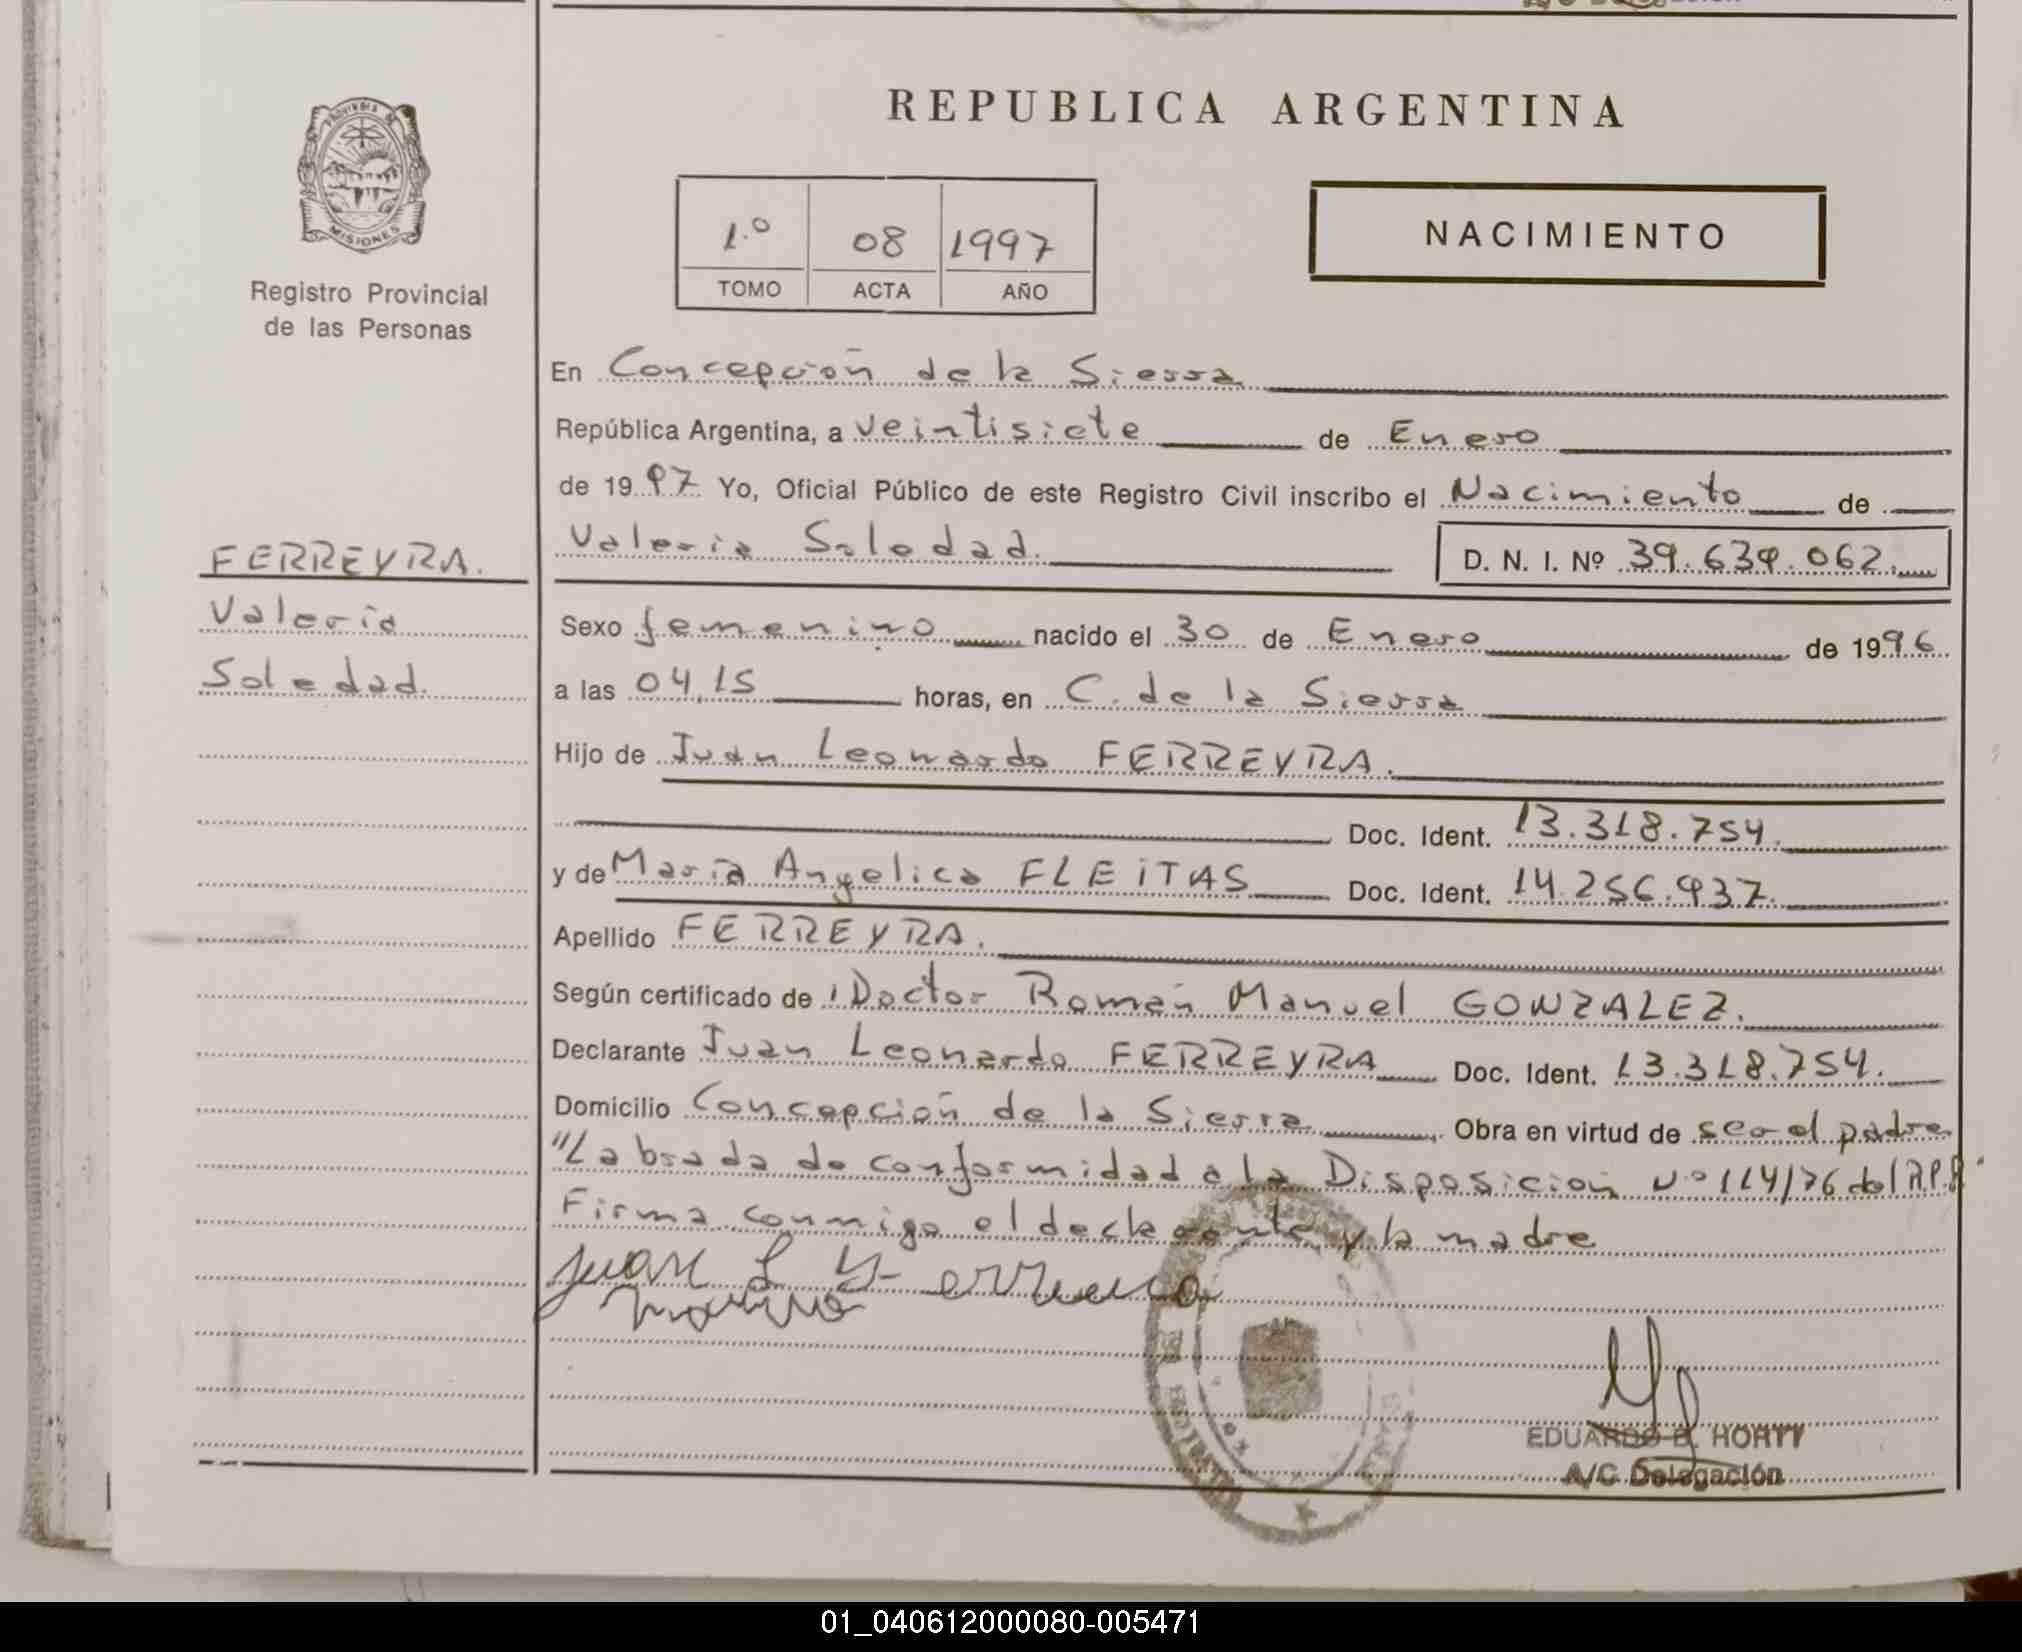 PROVINCIA DE
MISIONES
Registro Provincial
de las Personas
FERREYRA.
Valeria
Soledad.
REPUBLICA ARGENTINA
1.º 08 1997
TOMO ACTA AÑO
NACIMIENTO
En Concepción de la Sierra
República Argentina, a veintisiete de Enero
de 1997 Yo, Oficial Público de este Registro Civil inscribo el Nacimiento de
Valeria Soledad. D. N. I. Nº 39.639.062.
Sexo femenino nacido el 30 de Enero de 1996
a las 04,15 horas, en C. de la Sierra
Hijo de Juan Leonardo FERREYRA.
Doc. Ident. 13.318.754.
y de María Angelica FLEITAS Doc. Ident. 14.256.937.
Apellido FERREYRA.
Según certificado de Doctor Román Manuel GONZALEZ.
Declarante Juan Leonardo FERREYRA Doc. Ident. 13.318.754.
Domicilio Concepción de la Sierra Obra en virtud de ser el padre
"Labrada de conformidad a la Disposición Nº 114/76 del R.P.P."
Firma conmigo el declarante y la madre
Juan L Ferreyra
EDUARDO B. HORTT
A/C Delegación
01_040612000080-005471